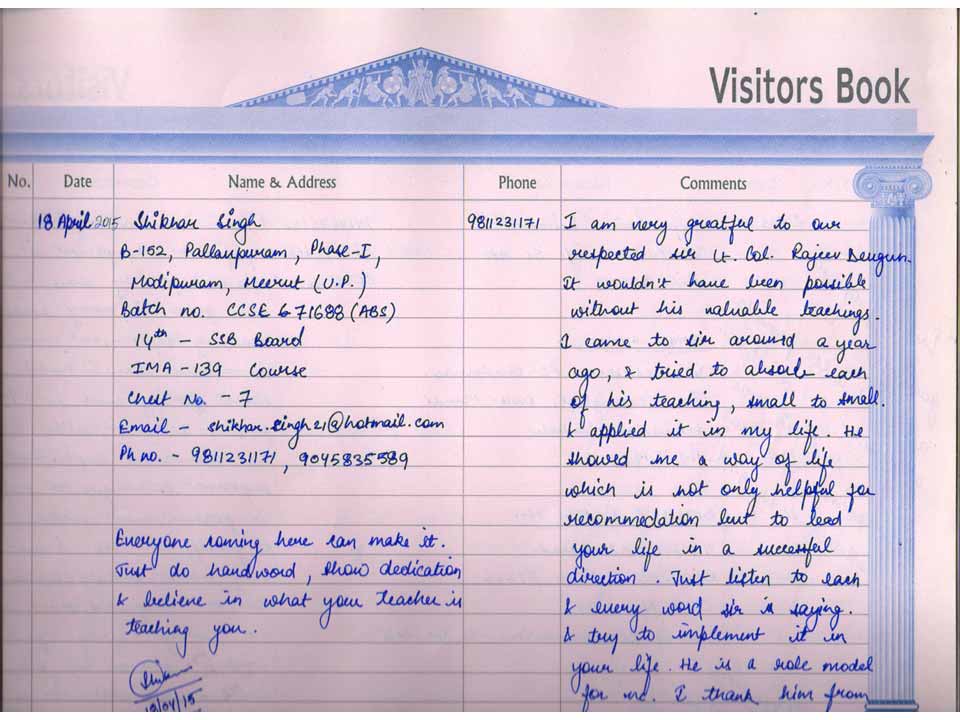 Visitors Book
No. Date Name & Address Phone Comments
18 April 2015 Shikhar Singh 9811231171
B-152, Pallavpuram, Phase-I,
Modipuram, Meerut (U.P.)
Batch no. CCSE 671688 (ABS)
14th - SSB Board
IMA-139 Course
Chest No. - 7
Email - shikhar.singh21@hotmail.com
Ph no. - 9811231171, 9045835589
Everyone coming here can make it.
Just do handword, show dedication
& believe in what your teacher is
teaching you.
18/04/15
I am very greatful to our
respected sir Lt. Col. Rajeev
It wouldn't have been possible
without his valuable teachings.
I came to sir around a year
ago, & tried to absorb each
of his teaching, small to small.
& applied it in my life. He
showed me a way of life
which is not only helpful for
recommedation but to lead
your life in a successful
direction. Just listen to each
& every word sir is saying.
& try to implement it in
your life. He is a role model
for me. I thank him from